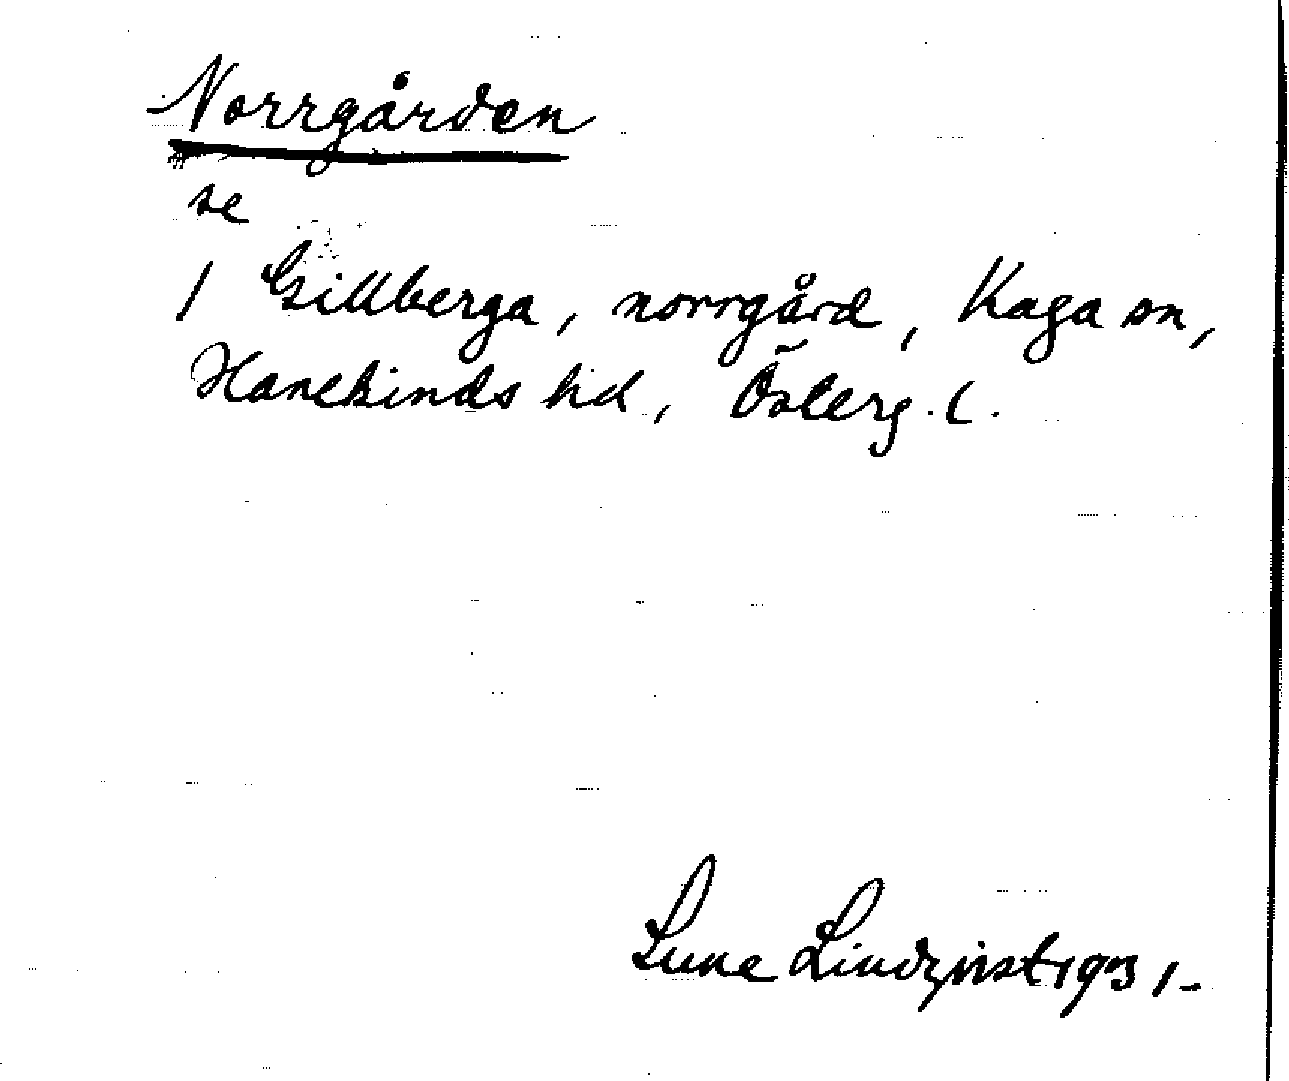 Norrgården
se
1 Gillberga, norrgård, Kaga sn,
Hanekinds hd, Österg. l.
Sune Lindqvist 1931.